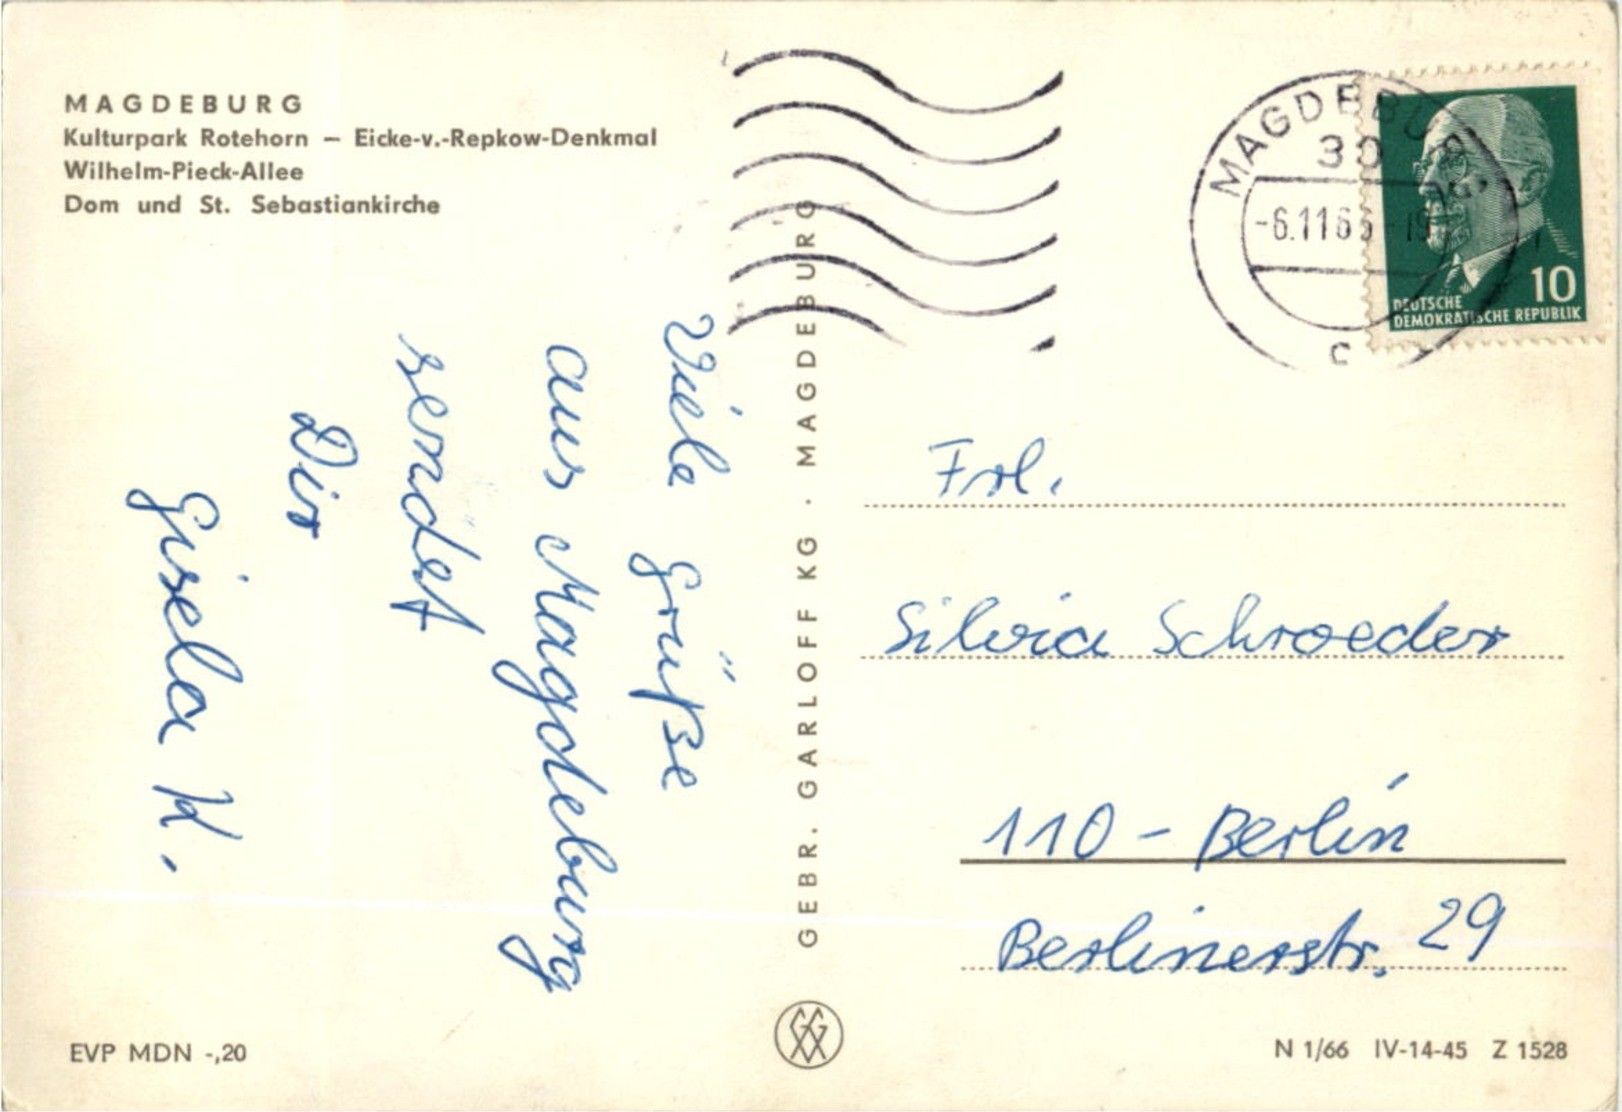 MAGDEBURG
Kulturpark Rotehorn – Eicke-v.-Repkow-Denkmal
Wilhelm-Pieck-Allee
Dom und St. Sebastiankirche
Viele Grüße
aus Magdeburg
sendet
Dir
Gisela K.
EVP MDN -,20
GEBR. GARLOFF KG · MAGDEBURG
MAGDEBURG
30
-6.11.6
C
10
DEUTSCHE
DEMOKRATISCHE REPUBLIK
Frl.
Silvia Schroeder
110 - Berlin
Berlinerstr. 29
N 1/66 IV-14-45 Z 1528